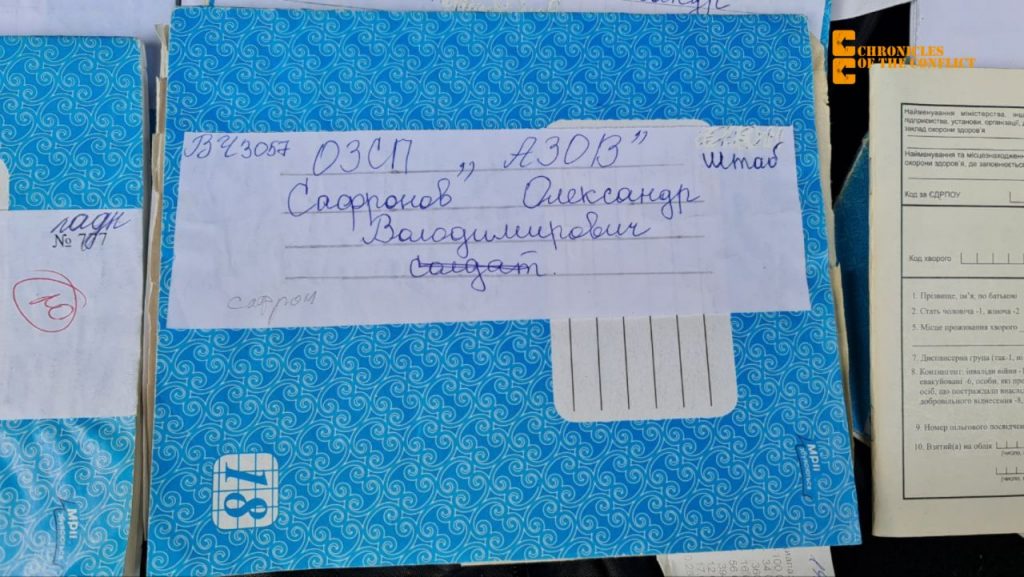 CHRONICLES
OF THE CONFLICT
ВЧ3057 ОЗСП „АЗОВ” штаб
Сафронов Олександр
Володимирович
солдат.
сафрон
18
Мрії
№ 7
Мрії
Найменування міністерства, інш
підприємства, установи, організації, д
заклад охорони здоров'я
Найменування та місцезнаходженн
охорони здоров'я, де заповнюєтьс
Код за ЄДРПОУ
Код хворого
1. Прізвище, ім'я, по батькові
2. Стать чоловіча -1, жіноча -2
5. Місце проживання хворого
7. Диспансерна група (так-1, ні
8. Контингент: інваліди війни -1
евакуйовані -6, особи, які про
осіб, що постраждали внасл
добровільного відселення -8,
9. Номер пільгового посвідчен
10. Взятий(а) на облік
(число,
(число,